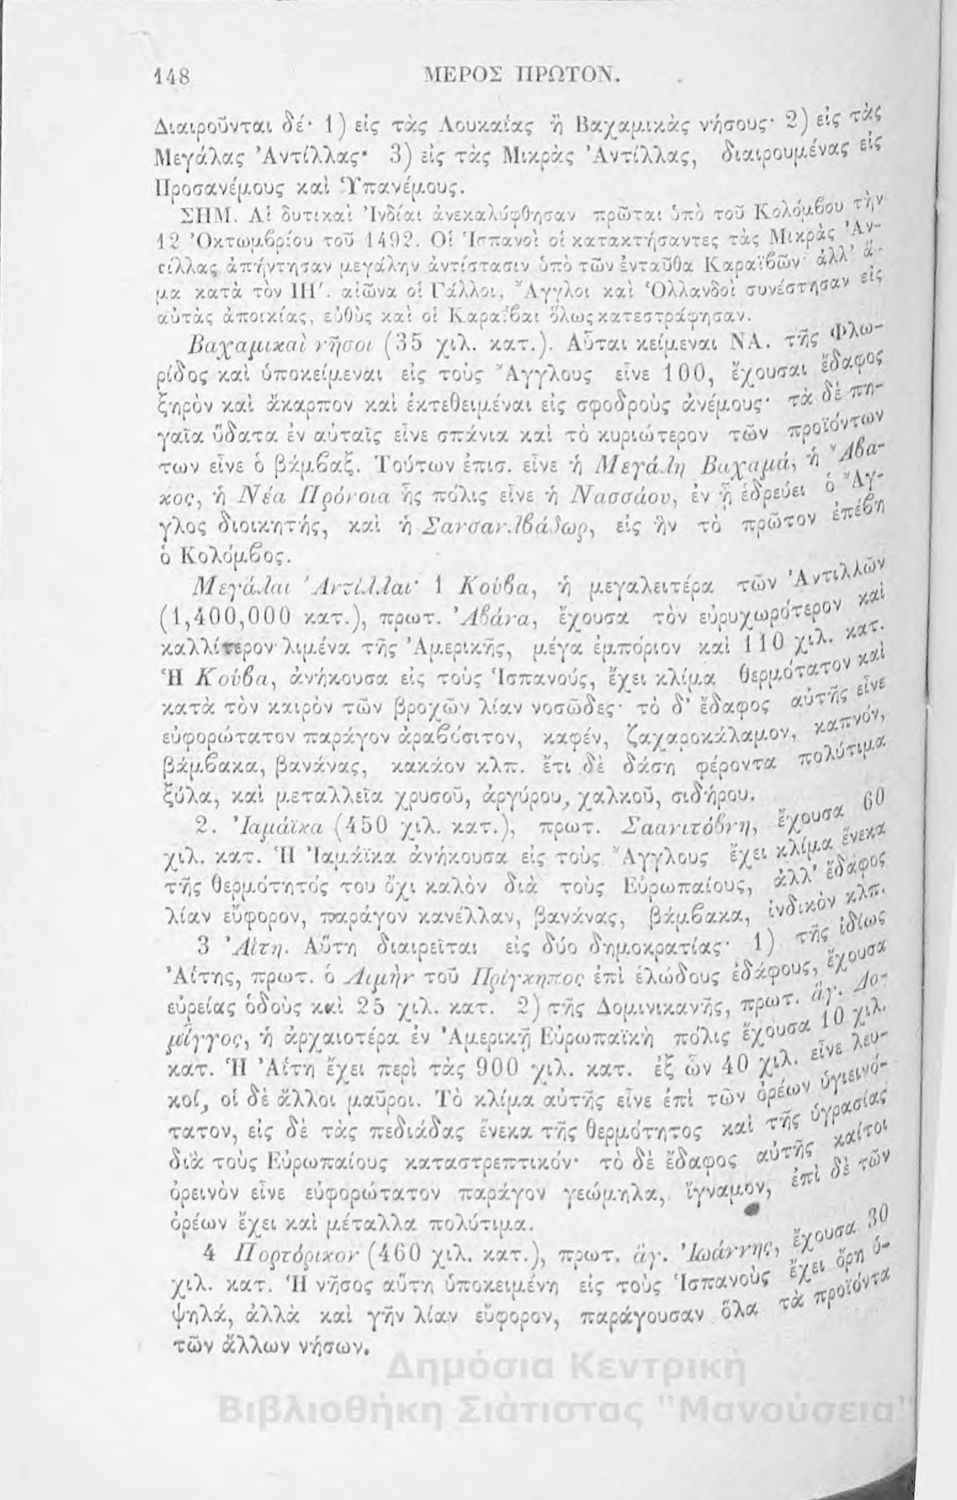 148 ΜΕΡΟΣ ΠΡΩΤΟΝ.
Διαιροῦνται δέ· 1) εἰς τὰς Λουκαΐας ἢ Βαχαμικὰς νήσους· 2) εἰς τὰς
Μεγάλας Ἀντίλλας· 3) εἰς τὰς Μικρὰς Ἀντίλλας, διαιρουμένας εἰς
Προσανέμους καὶ Ὑπανέμους.
ΣΗΜ. Αἱ δυτικαὶ Ἰνδίαι ἀνεκαλύφθησαν πρῶται ὑπὸ τοῦ Κολόμβου τὴν
12 Ὀκτωμβρίου τοῦ 1492. Οἱ Ἱσπανοὶ οἱ κατακτήσαντες τὰς Μικρὰς Ἀν-
τίλλας ἀπήντησαν μεγάλην ἀντίστασιν ὑπὸ τῶν ἐνταῦθα Καραϊβῶν· ἀλλ' ἅ-
μα κατὰ τὸν ΙΗ'. αἰῶνα οἱ Γάλλοι, Ἄγγλοι καὶ Ὁλλανδοὶ συνέστησαν εἰς
αὐτὰς ἀποικίας, εὐθὺς καὶ οἱ Καραΐβαι ὅλως κατεστράφησαν.
Βαχαμικαὶ νῆσοι (35 χιλ. κατ.). Αὗται κείμεναι ΝΑ. τῆς Φλω-
ρίδος καὶ ὑποκείμεναι εἰς τοὺς Ἄγγλους εἶνε 100, ἔχουσαι ἔδαφος
ξηρὸν καὶ ἄκαρπον καὶ ἐκτεθειμέναι εἰς σφοδροὺς ἀνέμους· τὰ δὲ πη-
γαῖα ὕδατα ἐν αὐταῖς εἶνε σπάνια καὶ τὸ κυριώτερον τῶν προϊόντων
των εἶνε ὁ βάμβαξ. Τούτων ἐπισ. εἶνε ἡ Μεγάλη Βαχαμά, ἡ Ἄβα-
κος, ἡ Νέα Πρόνοια ἧς πόλις εἶνε ἡ Νασσάου, ἐν ᾗ ἑδρεύει ὁ Ἄγ-
γλος διοικητής, καὶ ἡ Σανσαλβάδωρ, εἰς ἣν τὸ πρῶτον ἐπέβη
ὁ Κολόμβος.
Μεγάλαι Ἀντίλλαι· 1 Κούβα, ἡ μεγαλειτέρα τῶν Ἀντιλλῶν
(1,400,000 κατ.), πρωτ. Ἀβάνα, ἔχουσα τὸν εὐρυχωρότερον καὶ
καλλίτερον λιμένα τῆς Ἀμερικῆς, μέγα ἐμπόριον καὶ 110 χιλ. κατ.
Ἡ Κούβα, ἀνήκουσα εἰς τοὺς Ἱσπανούς, ἔχει κλίμα θερμότατον καὶ
κατὰ τὸν καιρὸν τῶν βροχῶν λίαν νοσῶδες· τὸ δ' ἔδαφος αὐτῆς εἶνε
εὐφορώτατον παράγον ἀραβόσιτον, καφέν, ζαχαροκάλαμον, καπνόν,
βάμβακα, βανάνας, κακάον κλπ. ἔτι δὲ δάση φέροντα πολύτιμα
ξύλα, καὶ μεταλλεῖα χρυσοῦ, ἀργύρου, χαλκοῦ, σιδήρου.
2. Ἰαμάϊκα (450 χιλ. κατ.), πρωτ. Σπανιτόβνη, ἔχουσα 60
χιλ. κατ. Ἡ Ἰαμάϊκα ἀνήκουσα εἰς τοὺς Ἄγγλους ἔχει κλίμα ἕνεκα
τῆς θερμότητός του ὄχι καλὸν διὰ τοὺς Εὐρωπαίους, ἀλλ' ἔδαφος
λίαν εὔφορον, παράγον κανέλλαν, βανάνας, βάμβακα, ἰνδικὸν κλπ.
3 Ἀΐτη. Αὕτη διαιρεῖται εἰς δύο δημοκρατίας· 1) τῆς ἰδίως
Ἀΐτης, πρωτ. ὁ Λιμὴν τοῦ Πρίγκηπος ἐπὶ ἑλώδους ἐδάφους, ἔχουσα
εὐρείας ὁδοὺς καὶ 25 χιλ. κατ. 2) τῆς Δομινικανῆς, πρωτ. ἅγ. Δο-
μίγγος, ἡ ἀρχαιοτέρα ἐν Ἀμερικῇ Εὐρωπαϊκὴ πόλις ἔχουσα 10 χιλ.
κατ. Ἡ Ἀΐτη ἔχει περὶ τὰς 900 χιλ. κατ. ἐξ ὧν 40 χιλ. εἶνε λευ-
κοί, οἱ δὲ ἄλλοι μαῦροι. Τὸ κλίμα αὐτῆς εἶνε ἐπὶ τῶν ὀρέων ὑγιεινό-
τατον, εἰς δὲ τὰς πεδιάδας ἕνεκα τῆς θερμότητος καὶ τῆς ὑγρασίας
διὰ τοὺς Εὐρωπαίους καταστρεπτικόν· τὸ δὲ ἔδαφος αὐτῆς καίτοι
ὀρεινὸν εἶνε εὐφορώτατον παράγον γεώμηλα, ἴγναμον, ἐπὶ δὲ τῶν
ὀρέων ἔχει καὶ μέταλλα πολύτιμα.
4 Πορτόρικον (460 χιλ. κατ.), πρωτ. ἅγ. Ἰωάννης, ἔχουσα 30
χιλ. κατ. Ἡ νῆσος αὕτη ὑποκειμένη εἰς τοὺς Ἱσπανοὺς ἔχει ὄρη ὑ-
ψηλά, ἀλλὰ καὶ γῆν λίαν εὔφορον, παράγουσαν ὅλα τὰ προϊόντα
τῶν ἄλλων νήσων.
Δημόσια Κεντρική
Βιβλιοθήκη Σιάτιστας "Μανούσεια"